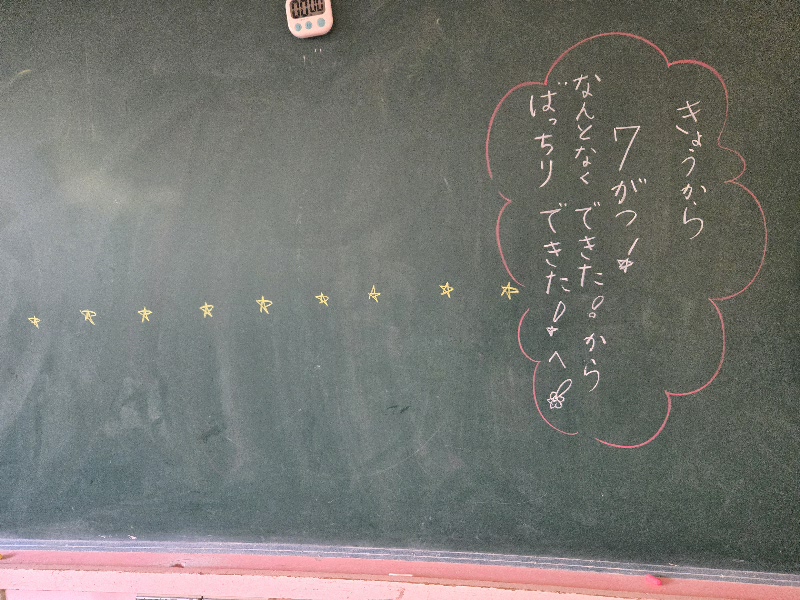 きょうから
7がつ!
なんとなく できた!。から
ばっちり できた!へ